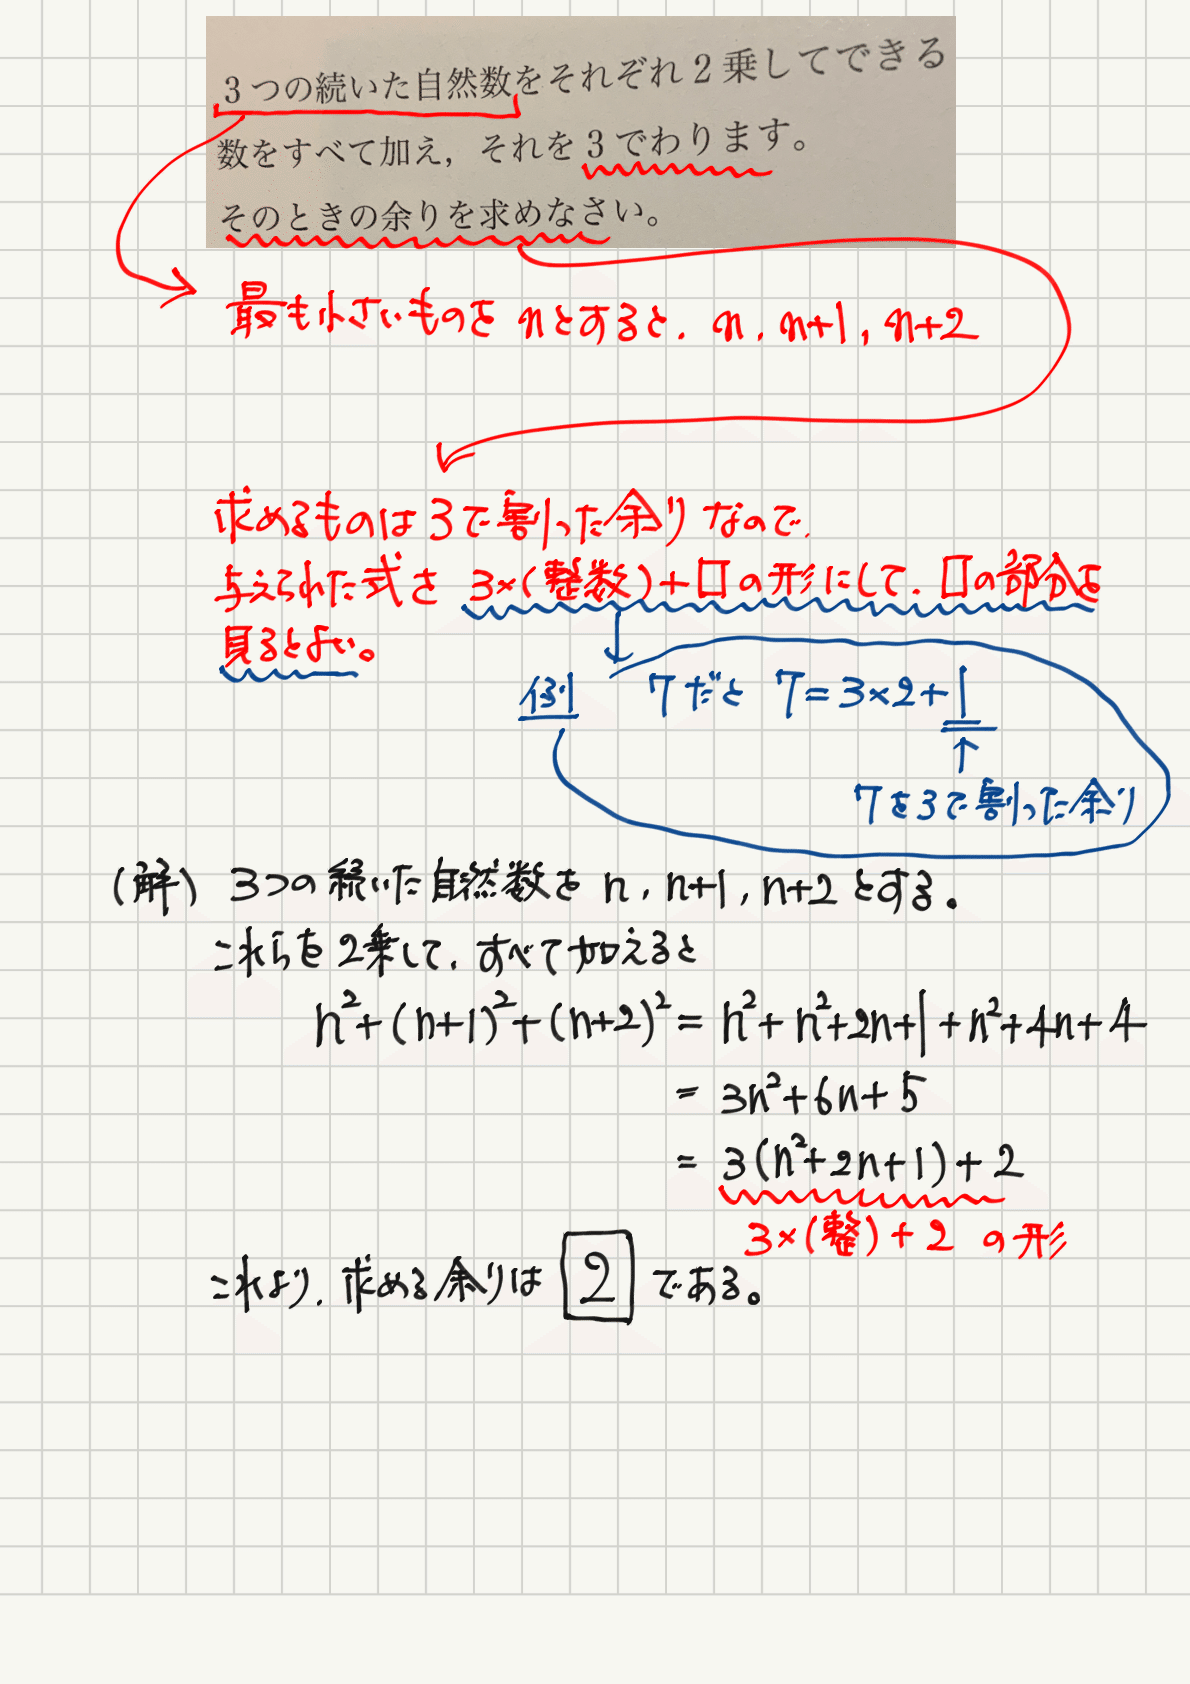 3つの続いた自然数をそれぞれ2乗してできる
数をすべて加え，それを3でわります。
そのときの余りを求めなさい。
最も小さいものを nとすると, n, n+1, n+2
求めるものは3で割った余りなので,
与えられた式を 3×(整数)+□の形にして, □の部分を
見るとよい。
例 7だと 7=3×2+1
↑
7を3で割った余り
(解) 3つの続いた自然数を n, n+1, n+2 とする。
これらを2乗して, すべて加えると
n²+(n+1)²+(n+2)² = n²+n²+2n+1+n²+4n+4
= 3n²+6n+5
= 3(n²+2n+1)+2
3×(整)+2 の形
これより, 求める余りは 2 である。